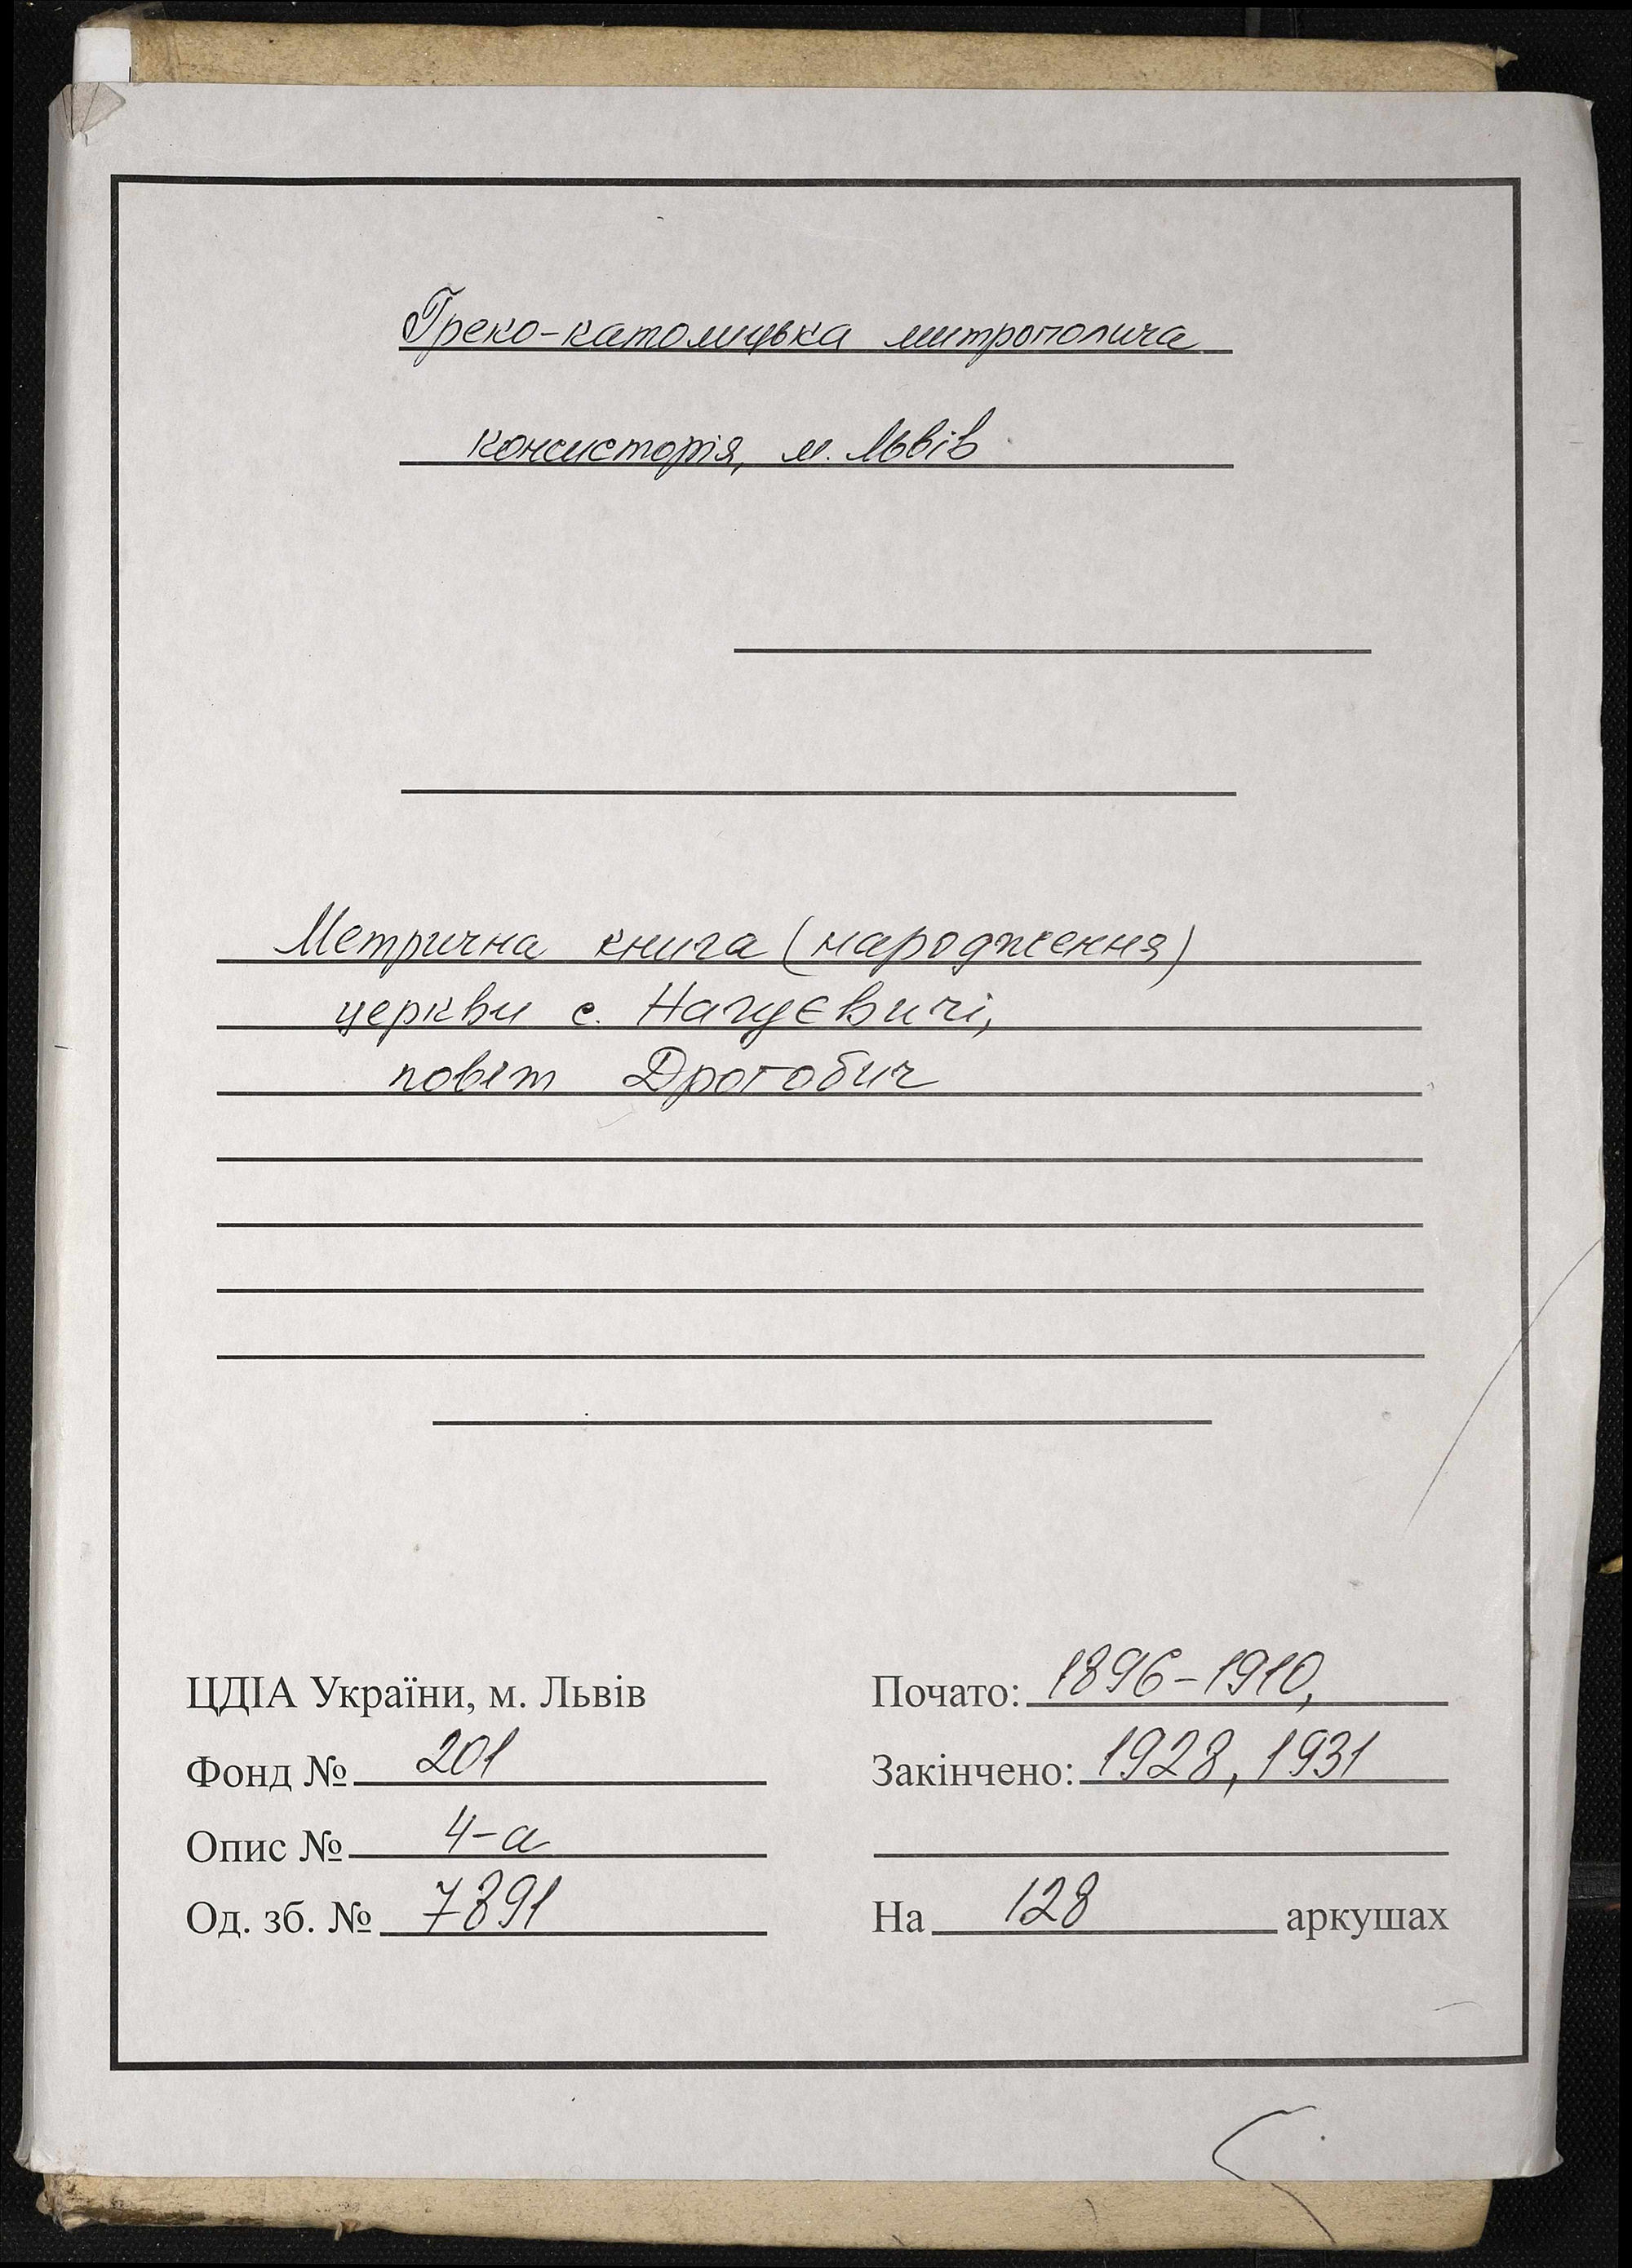 Греко-католицька митрополича
консисторія, м. Львів
Метрична книга (народження)
церкви с. Нагуєвичі,
повіт Дрогобич
ЦДІА України, м. Львів
Фонд № 201
Опис № 4-а
Од. зб. № 7891
Почато: 1896-1910,
Закінчено: 1928, 1931
На 128 аркушах